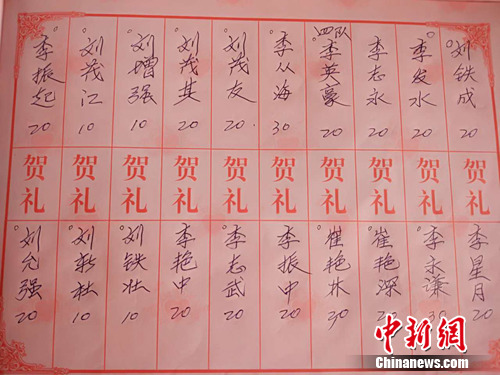 李振起 刘茂江 刘增强 刘茂其 刘茂友 李从海 四队 李英豪 李志永 李发水 刘铁成
20 10 10 20 20. 30 20 20 20 20
贺礼 贺礼 贺礼 贺礼 贺礼 贺礼 贺礼 贺礼 贺礼 贺礼
刘允强 刘新壮 刘铁壮 李艳中 李志武 李振中 崔艳林 崔艳深 李永谦 李星月
20 10 10 20 20 20 30 20 30 20
中新网
Chinanews.com